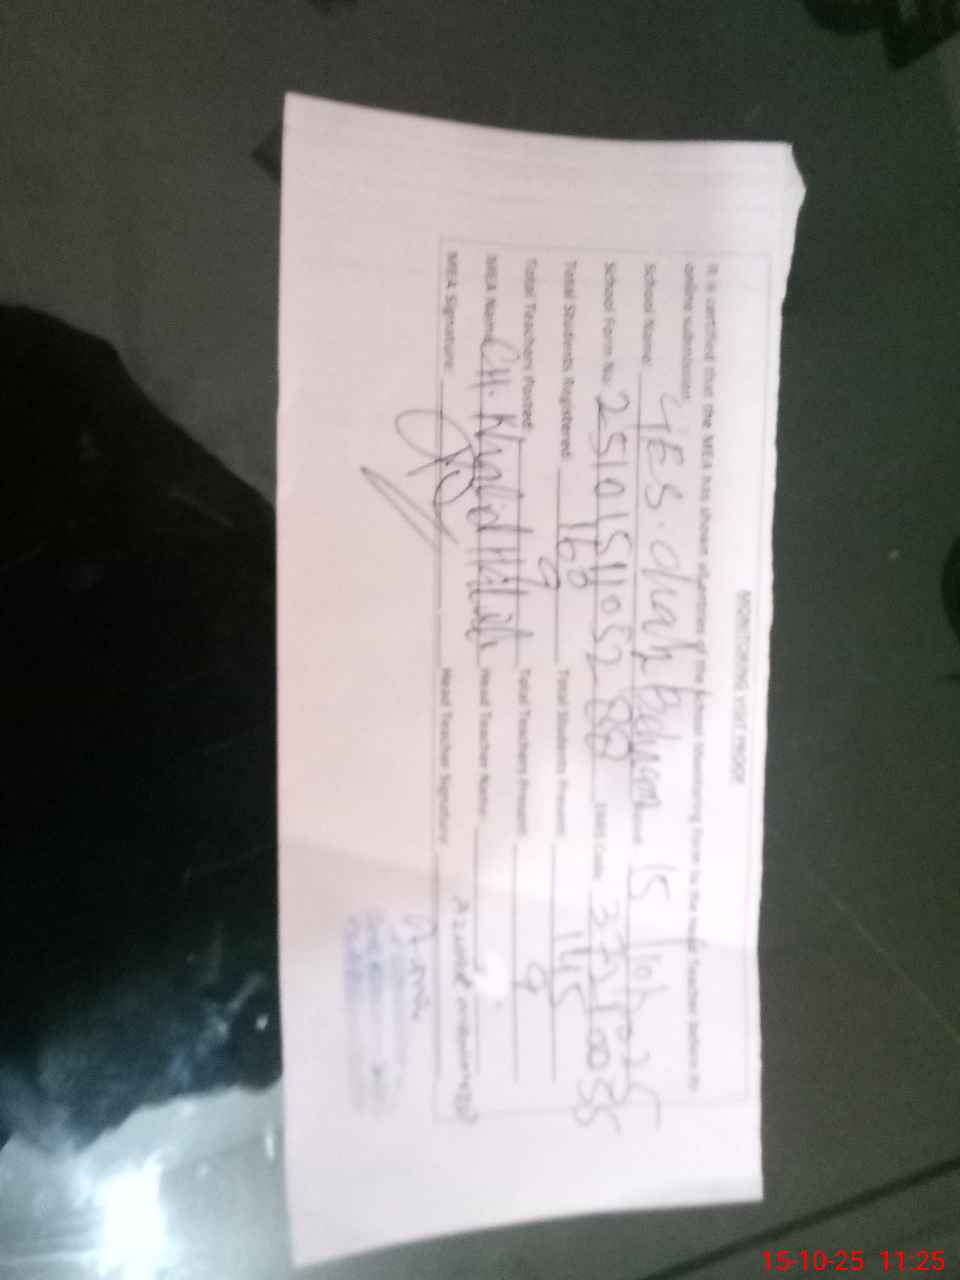 MONITORING VISIT PROOF
It is certified that the MEA has shown all entries of the School Monitoring Form to the Head Teacher before its
online submission.
School Name: GES. Bahram Date 15/10/2025
School Form No: 25101511052 88 EMIS Code: 37310055
Total Students Registered: 168 Total Students Present: 145
Total Teachers Posted: 9 Total Teachers Present: 9
MEA Name: CH. Khalid Head Teacher Name:
MEA Signature: Head Teacher Signature:
15-10-25 11:25